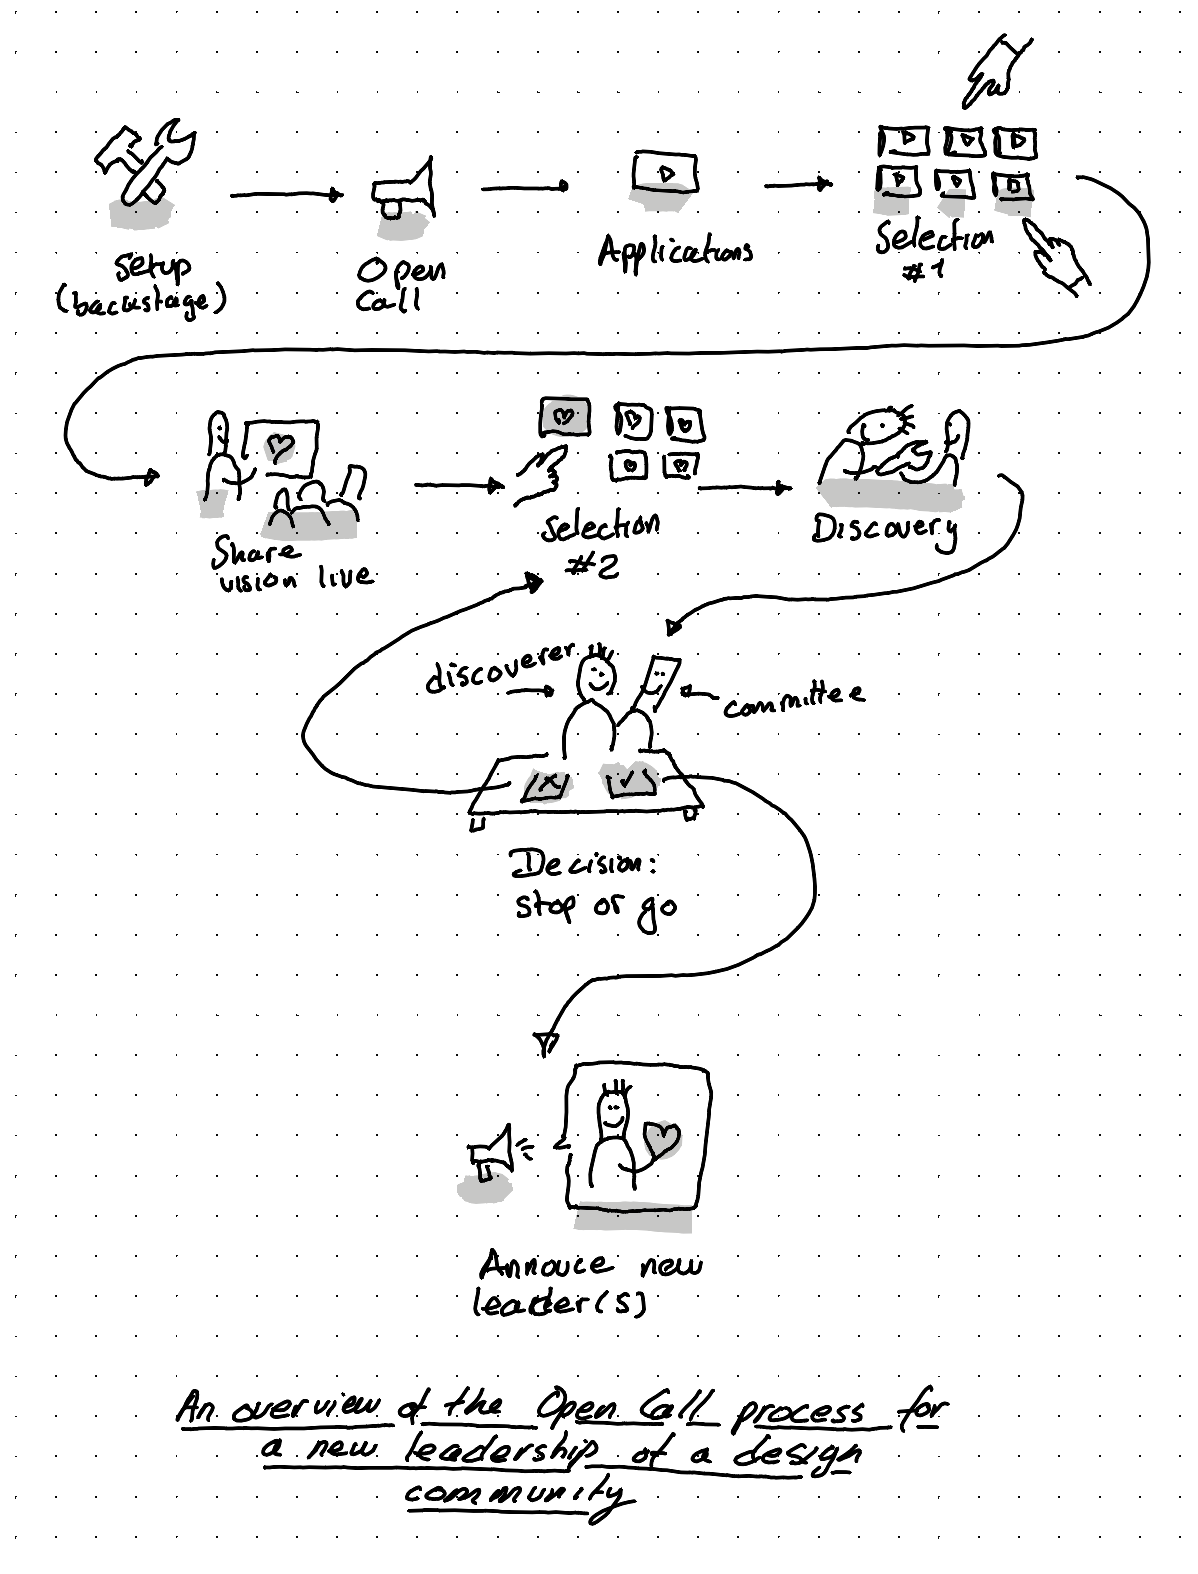 Setup
(backstage)
Open
Call
Applications
Selection
#1
Share
vision live
Selection
#2
Discovery
discoverer
committee
Decision:
stop or go
Annouce new
leader(s)
An overview of the Open Call process for
a new leadership of a design
community